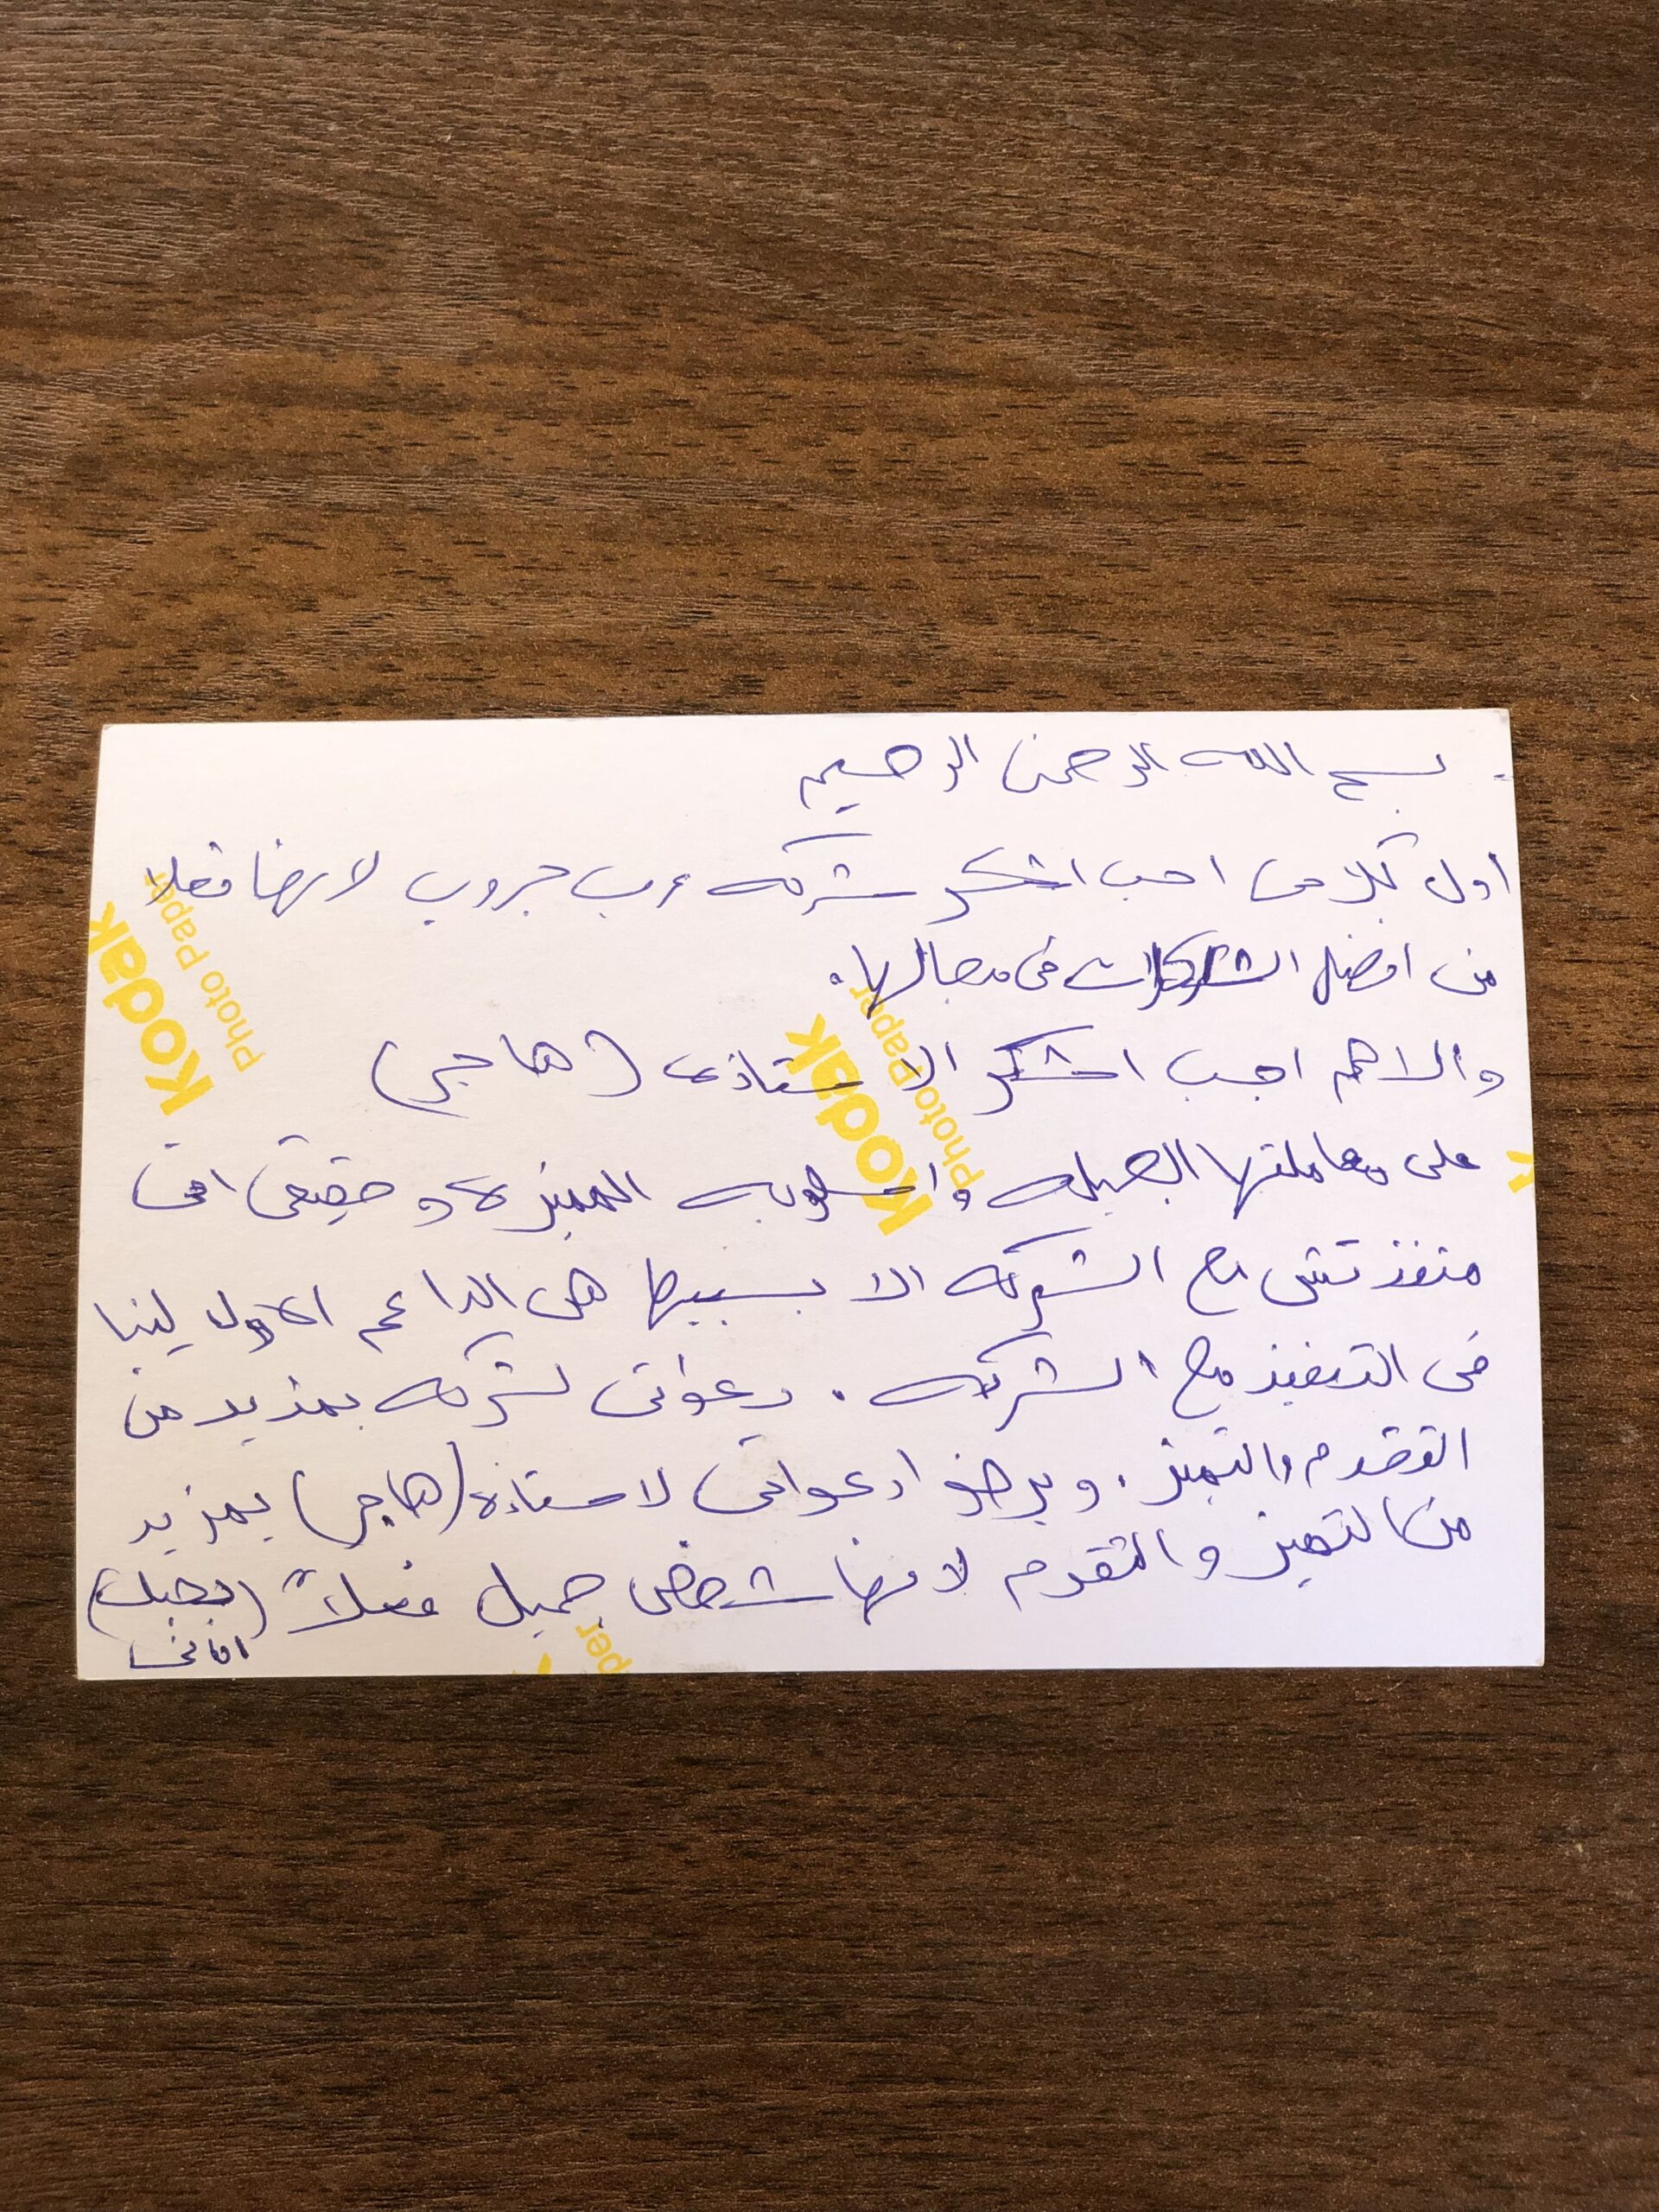 بسم الله الرحمن الرحيم
اول كلامى احب اشكر شركه عرب جروب لانها فعلا
من افضل الشركات فى مجالها.
والاهم احب اشكر الاستاذى (هاجر)
على معاملتها الجميله واسلوبه المميزه و حقيقى
منفذتش مع الشركه الا بسببها هى الداعم الاول لينا
فى التنفيذ مع الشركه . دعواتى لشركه بمذيد من
التقدم والتميز . وبرضو ادعواتى لاستاذه (هاجر) بمزيد
من التميز والتقدم لانها شخص جميل فعلاً
Kodak
Photo Paper
Kodak
Photo Paper
per